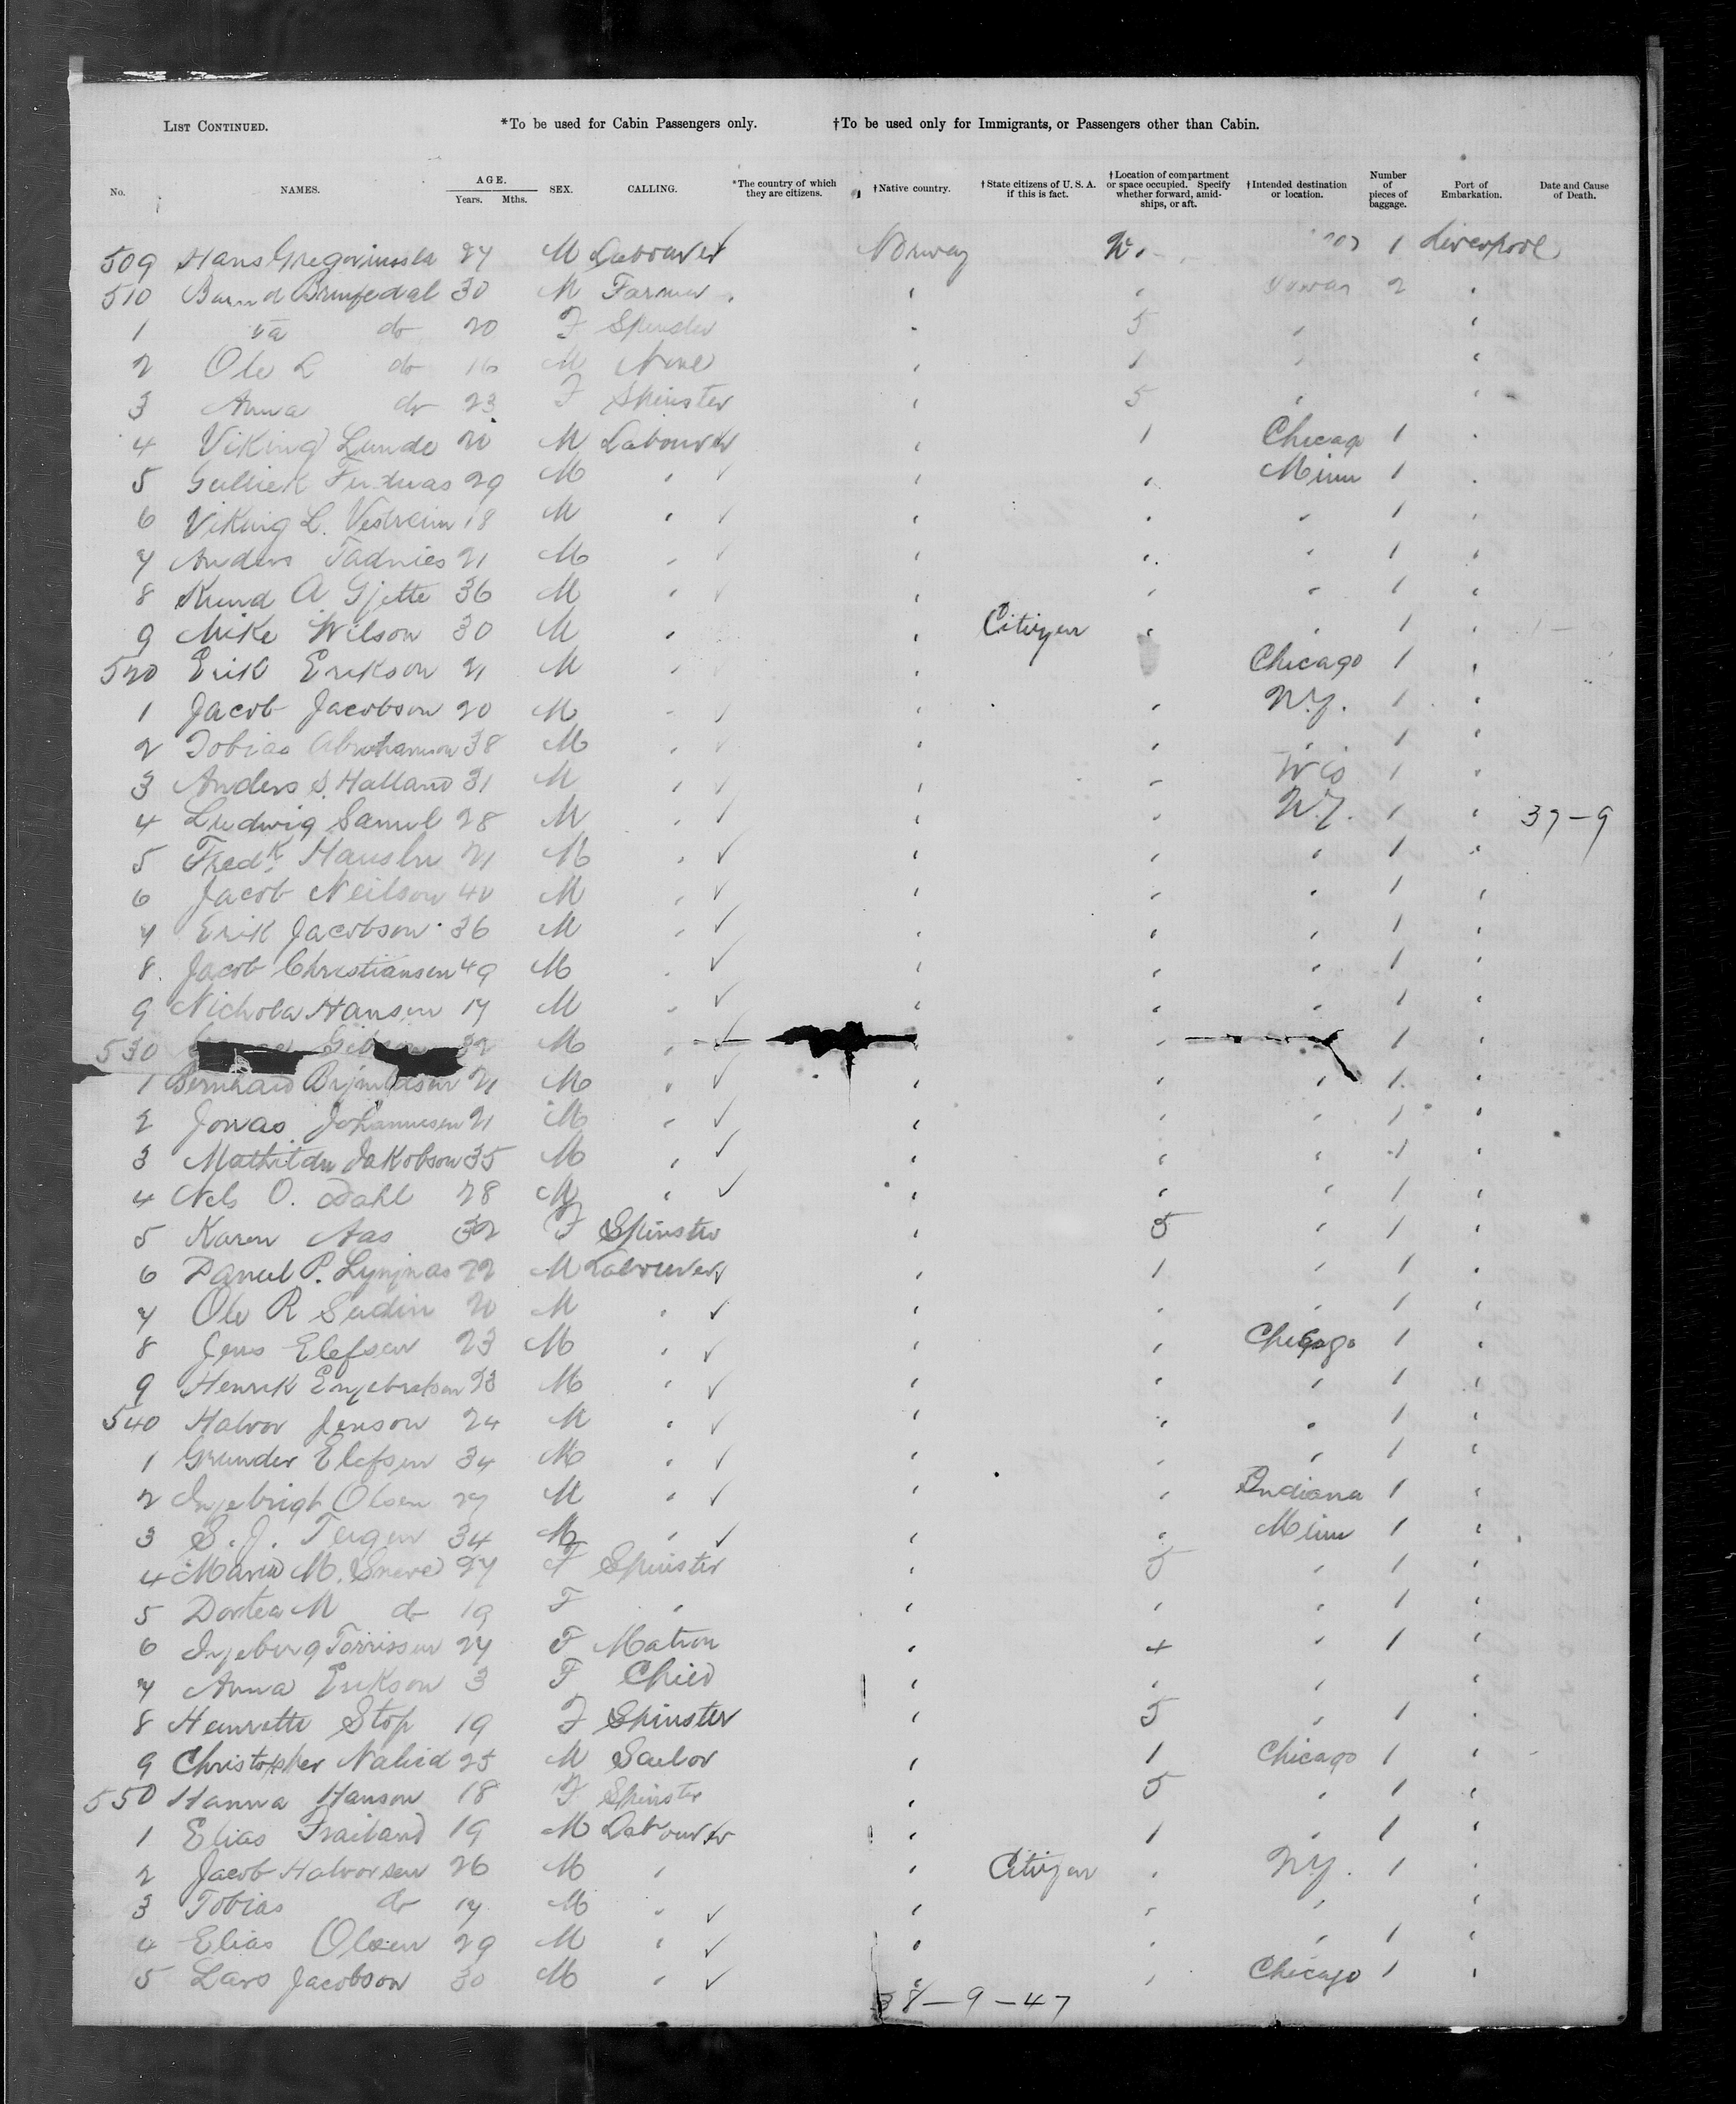 LIST CONTINUED. *To be used for Cabin Passengers only. †To be used only for Immigrants, or Passengers other than Cabin.
No. NAMES. AGE. Years. Mths. SEX. CALLING. *The country of which they are citizens. †Native country. †State citizens of U. S. A. if this is fact. †Location of compartment or space occupied. Specify whether forward, amidships, or aft. †Intended destination or location. Number of pieces of baggage. Port of Embarkation. Date and Cause of Death.
509 Hans 27 M Labourer ✓ Norway 1 Liverpool
510 30 M Farmer " " 2 "
1 do 20 F Spinster " 5 " "
2 Ole L do 16 M None " 1 " "
3 Anna do 23 F Spinster " 5 " "
4 Viking Lunde 20 M Labourer " 1 Chicago 1 "
5 29 M " ✓ " " Minn 1 "
6 Viking L. Vestreim 18 M " ✓ " " " 1 "
7 Anders 21 M " ✓ " " " 1 "
8 Knud A. Gjette 36 M " ✓ " " " 1 "
9 Mike Wilson 30 M " " Citizen " " 1 "
520 Erik Erikson 21 M " ✓ " Chicago 1 "
1 Jacob Jacobson 20 M " ✓ " " N.Y. 1 "
2 Tobias Abrahamson 38 M " ✓ " " " 1 "
3 Anders S. Halland 31 M " ✓ " " Wis 1 "
4 Ludwig Samul 28 M " ✓ " " N.Y. 1 " 37-9
5 Fredk. 21 M " ✓ " " " 1 "
6 Jacob Neilson 40 M " ✓ " " " 1 "
7 Erik Jacobson 36 M " ✓ " " " 1 "
8 Jacob Christiansen 49 M " ✓ " " " 1 "
9 Nichola Hansen 17 M " ✓ " " " 1 "
530 32 M " ✓ " " 1 "
1 Bernhard 21 M " ✓ " " " 1 "
2 Jonas Johannesen 21 M " ✓ " " " 1 "
3 Jakobson 35 M " ✓ " " " 1 "
4 Nels O. Dahl 28 M " ✓ " " " 1 "
5 Karen Aas 32 F Spinster " 5 " 1 "
6 P. 22 M Labourer " 1 " 1 "
7 Ole R 20 M " ✓ " " " 1 "
8 Jens Elefsen 23 M " ✓ " " Chicago 1 "
9 Henrik Engebretsen 23 M " ✓ " " " 1 "
540 Halvor Jenson 24 M " ✓ " " " 1 "
1 Grunder Elefsen 34 M " ✓ " " " 1 "
2 Ingebrigt Olsen 27 M " ✓ " " Indiana 1 "
3 S. J. 34 M " ✓ " " Minn 1 "
4 Maria M. 27 F Spinster " 5 " 1 "
5 Dortea M do 19 F " " " " 1 "
6 Ingeborg Torrissen 27 F Matron " 4 " 1 "
7 Anna Erikson 3 F Child " " " "
8 Stop 19 F Spinster " 5 " 1 "
9 Christopher 25 M Sailor " 1 Chicago 1 "
550 Hanna Hanson 18 F Spinster " 5 " 1 "
1 Elias 19 M Labourer " 1 " 1 "
2 Jacob Halvorsen 26 M " " Citizen " N.Y. 1 "
3 Tobias do 17 M " ✓ " " " "
4 Elias Olsen 29 M " ✓ " " " 1 "
5 Lars Jacobson 30 M " ✓ " " Chicago 1 "
38-9-47